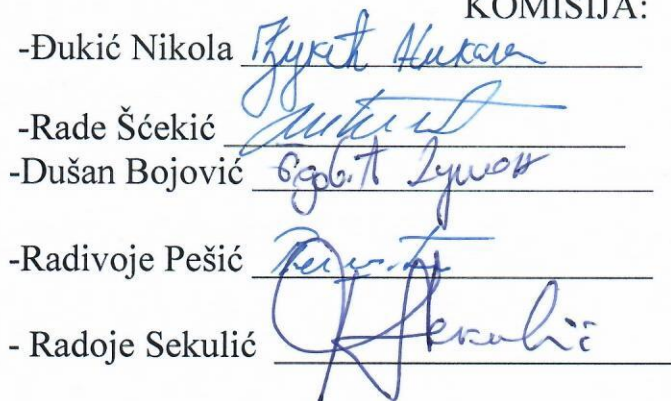 KOMISIJA:
-Đukić Nikola Ђукић Никола
-Rade Šćekić
-Dušan Bojović
-Radivoje Pešić
- Radoje Sekulić Sekulić